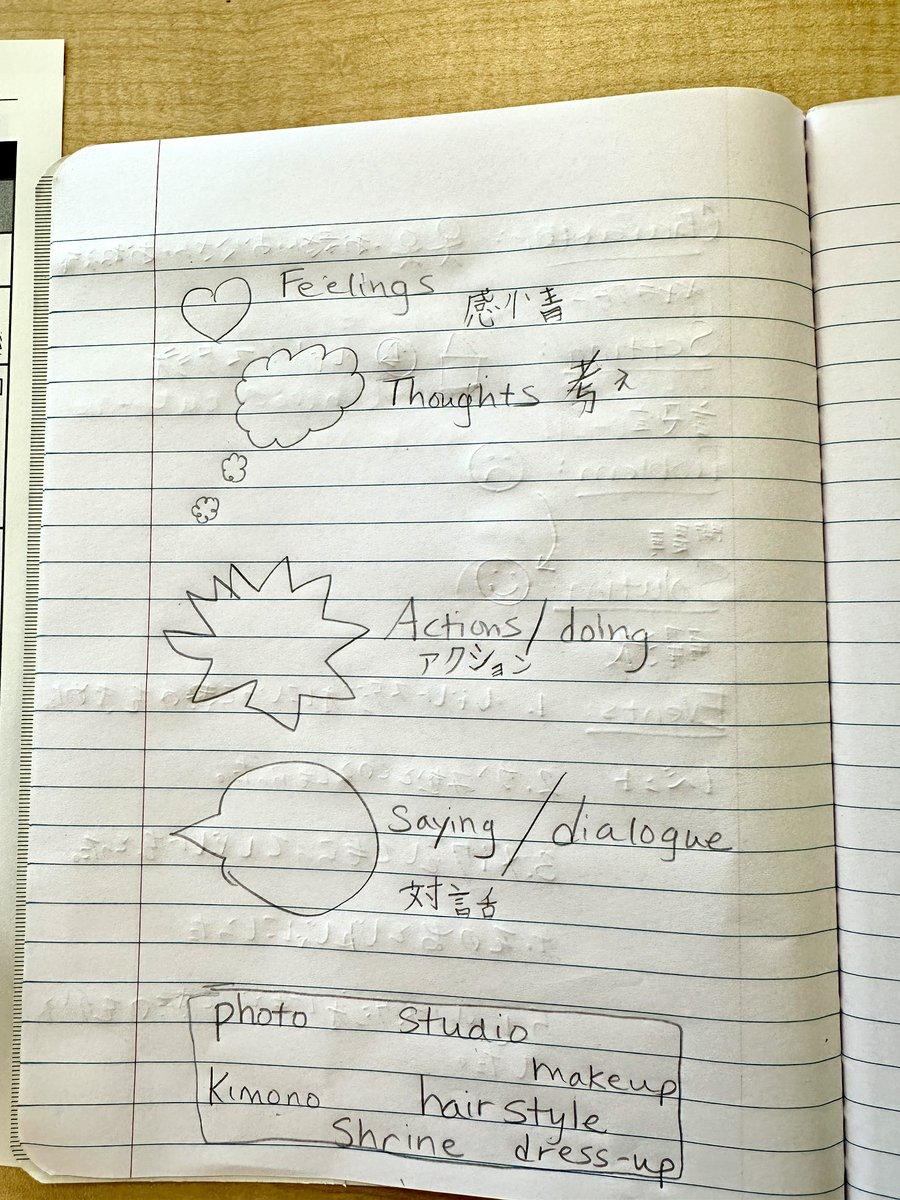 Feelings
感情
Thoughts 考え
Actions/doing
アクション
saying/dialogue
対話
photo studio
makeup
Kimono hair style
Shrine dress-up